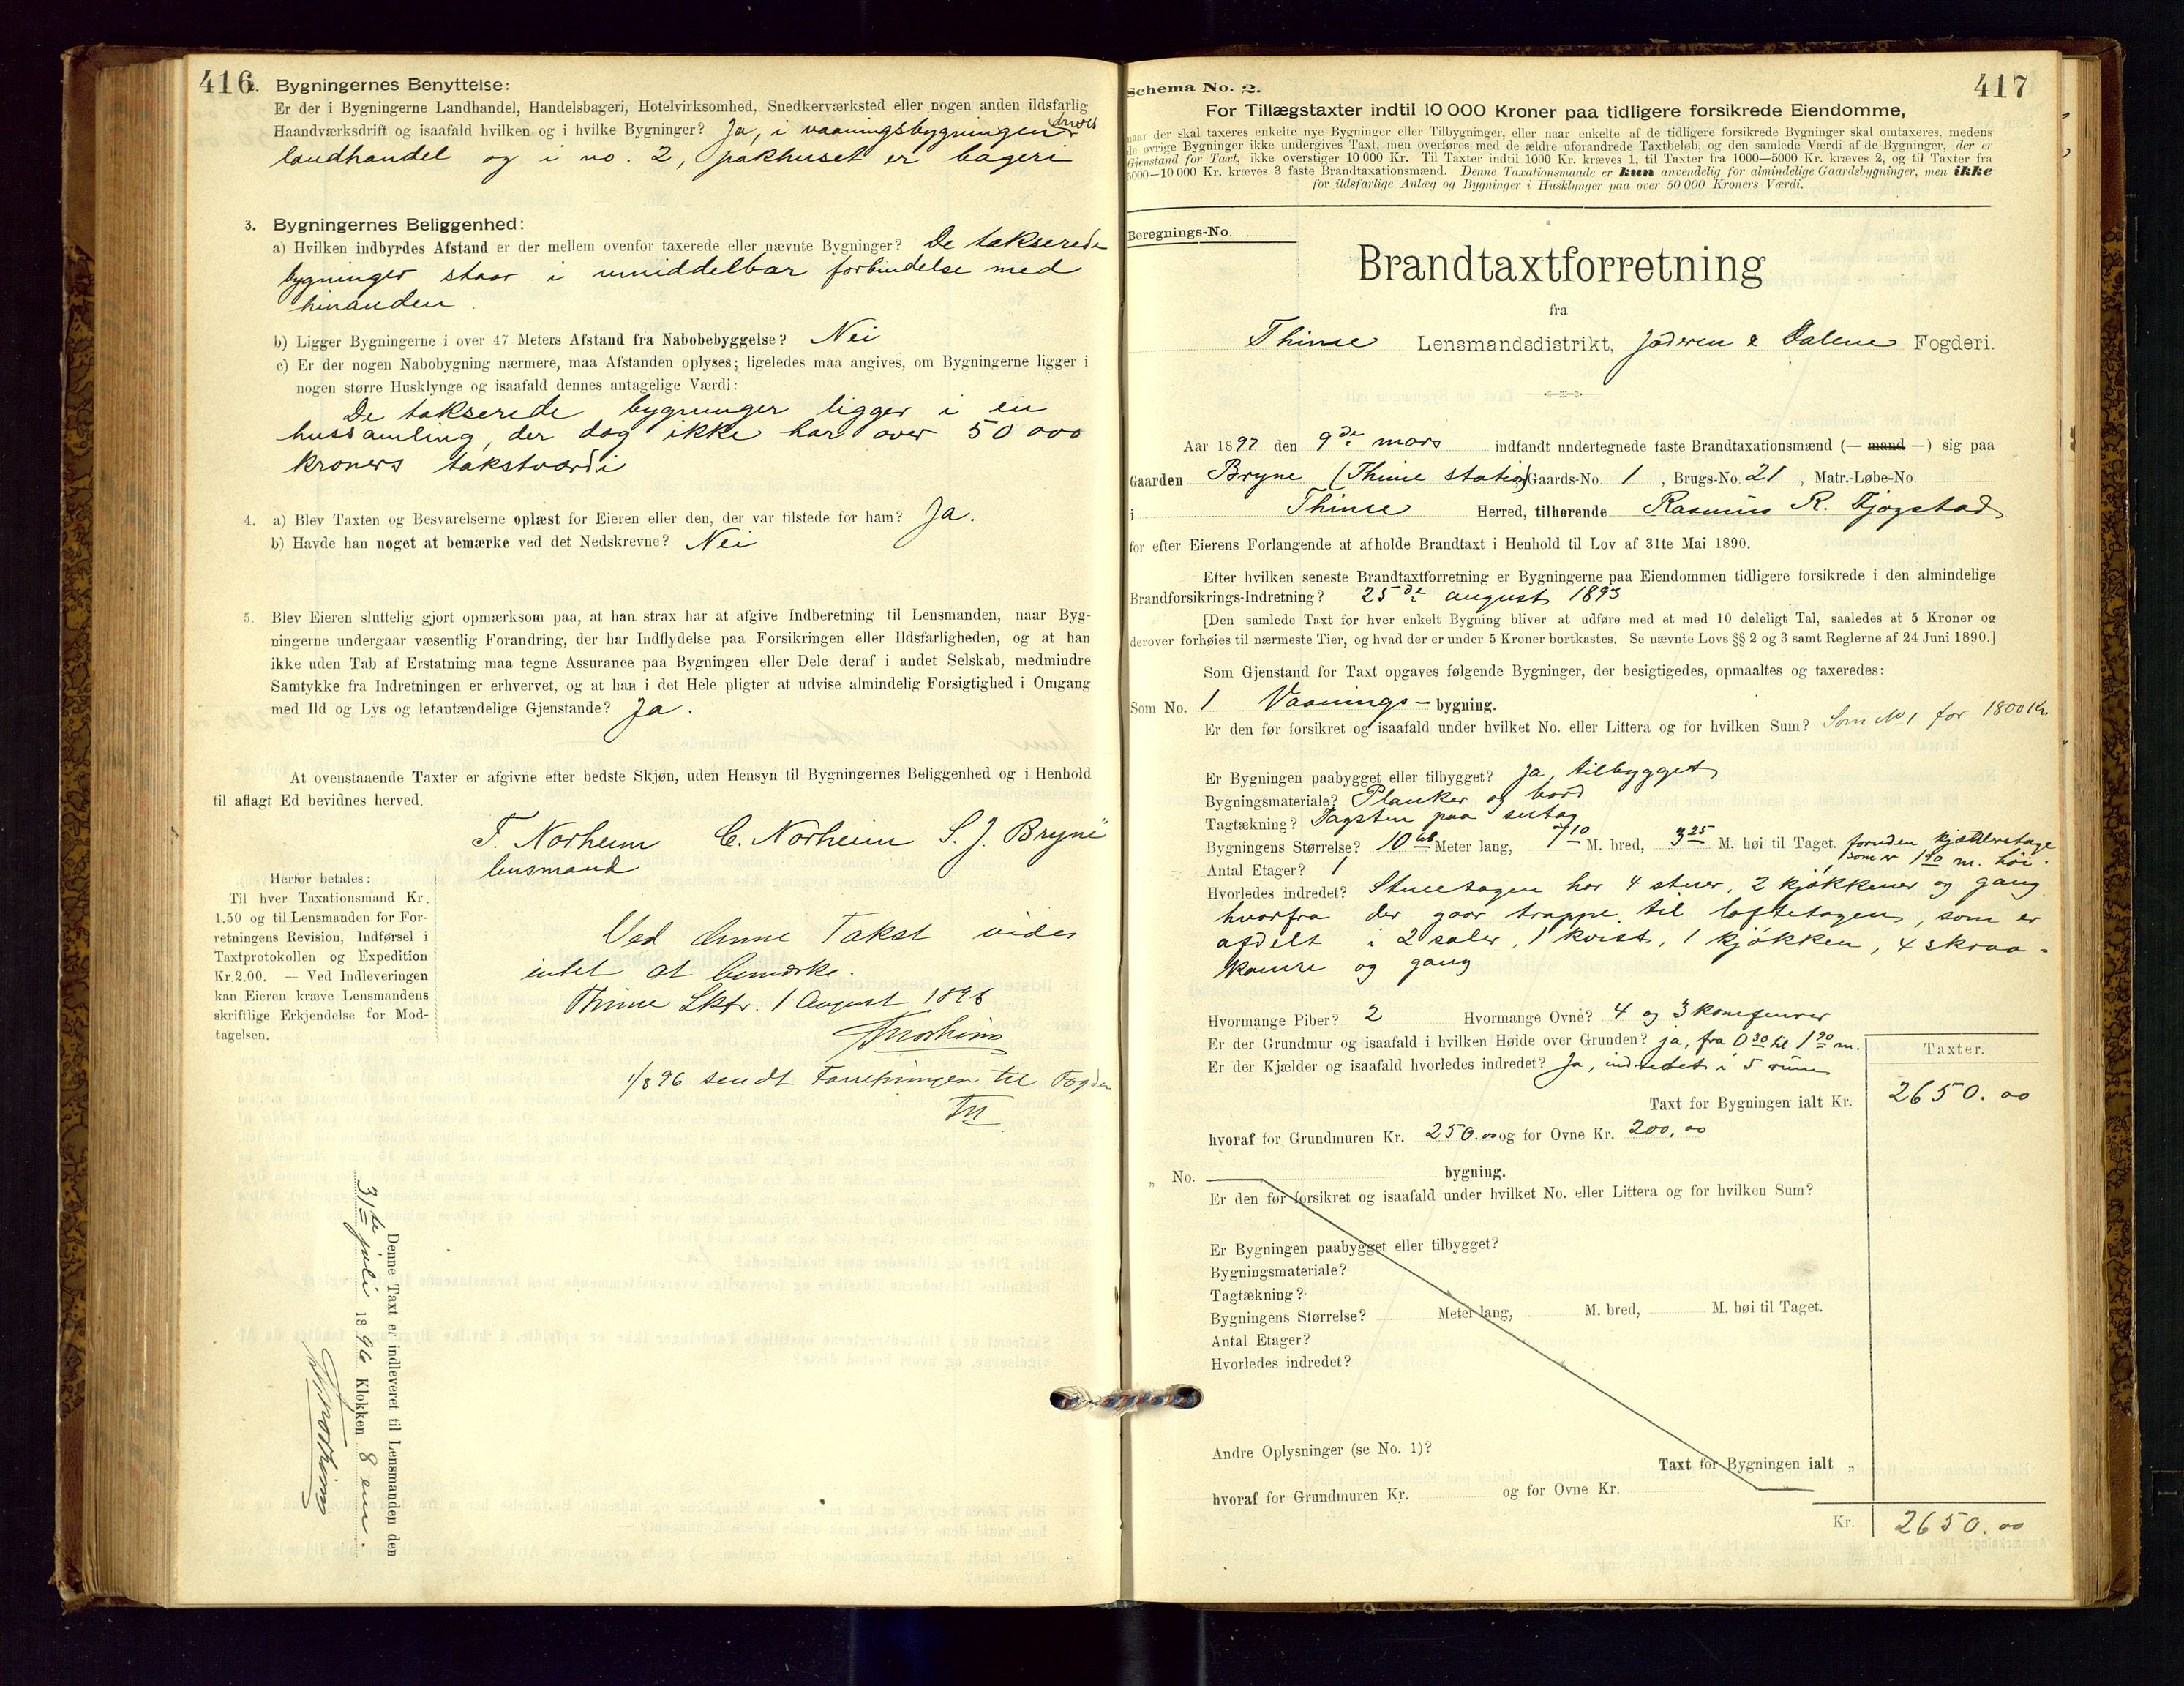 416
2. Bygningernes Benyttelse:
Er der i Bygningerne Landhandel, Handelsbageri, Hotelvirksomhed, Snedkerværksted eller nogen anden ildsfarlig
Haandværksdrift og isaafald hvilken og i hvilke Bygninger? Ja, i vaaningsbygningen drives
landhandel og i no. 2, pakhuset er bageri
3. Bygningernes Beliggenhed:
a) Hvilken indbyrdes Afstand er der mellem ovenfor taxerede eller nævnte Bygninger? De takserede
bygninger staar i umiddelbar forbindelse med
hinanden.
b) Ligger Bygningerne i over 47 Meters Afstand fra Nabobebyggelse? Nei
c) Er der nogen Nabobygning nærmere, maa Afstanden oplyses; ligeledes maa angives, om Bygningerne ligger i
nogen større Husklynge og isaafald dennes antagelige Værdi:
De takserede bygninger ligger i en
hussamling, der dog ikke har over 50 000
kroners takstværdi
4. a) Blev Taxten og Besvarelserne oplæst for Eieren eller den, der var tilstede for ham? Ja.
b) Havde han noget at bemærke ved det Nedskrevne? Nei
5. Blev Eieren sluttelig gjort opmærksom paa, at han strax har at afgive Indberetning til Lensmanden, naar Byg-
ningerne undergaar væsentlig Forandring, der har Indflydelse paa Forsikringen eller Ildsfarligheden, og at han
ikke uden Tab af Erstatning maa tegne Assurance paa Bygningen eller Dele deraf i andet Selskab, medmindre
Samtykke fra Indretningen er erhvervet, og at han i det Hele pligter at udvise almindelig Forsigtighed i Omgang
med Ild og Lys og letantændelige Gjenstande? Ja.
At ovenstaaende Taxter er afgivne efter bedste Skjøn, uden Hensyn til Bygningernes Beliggenhed og i Henhold
til aflagt Ed bevidnes herved.
T. Norheim C. Norheim S. J. Bryne
lensmand
Herfor betales:
Til hver Taxationsmand Kr.
1.50 og til Lensmanden for For-
retningens Revision, Indførsel i
Taxtprotokollen og Expedition
Kr. 2.00. — Ved Indleveringen
kan Eieren kræve Lensmandens
skriftlige Erkjendelse for Mod-
tagelsen.
Ved denne Takst vides
intet at bemærke.
Thime Lktr. 1 August 1896
T Norheim
1/8 96 sendt Forretningen til Fogden
TN
Denne Taxt er indleveret til Lensmanden den
31te juli 1896 Klokken 8 em.
T Norheim
417
Schema No. 2.
For Tillægstaxter indtil 10 000 Kroner paa tidligere forsikrede Eiendomme,
naar der skal taxeres enkelte nye Bygninger eller Tilbygninger, eller naar enkelte af de tidligere forsikrede Bygninger skal omtaxeres, medens
de øvrige Bygninger ikke undergives Taxt, men overføres med de ældre uforandrede Taxtbeløb, og den samlede Værdi af de Bygninger, der er
Gjenstand for Taxt, ikke overstiger 10 000 Kr. Til Taxter indtil 1000 Kr. kræves 1, til Taxter fra 1000—5000 Kr. kræves 2, og til Taxter fra
5000—10 000 Kr. kræves 3 faste Brandtaxationsmænd. Denne Taxationsmaade er kun anvendelig for almindelige Gaardsbygninger, men ikke
for ildsfarlige Anlæg og Bygninger i Husklynger paa over 50 000 Kroners Værdi.
Beregnings-No.
Brandtaxtforretning
fra
Thime Lensmandsdistrikt, Jæderen & Dalene Fogderi.
Aar 1897 den 9de mars indfandt undertegnede faste Brandtaxationsmænd (— mand —) sig paa
Gaarden Bryne (Thime station) Gaards-No. 1, Brugs-No. 21, Matr.-Løbe-No.
i Thime Herred, tilhørende Rasmus R. Fjogstad
for efter Eierens Forlangende at afholde Brandtaxt i Henhold til Lov af 31te Mai 1890.
Efter hvilken seneste Brandtaxtforretning er Bygningerne paa Eiendommen tidligere forsikrede i den almindelige
Brandforsikrings-Indretning? 25de august 1893
[Den samlede Taxt for hver enkelt Bygning bliver at udføre med et med 10 deleligt Tal, saaledes at 5 Kroner og
derover forhøies til nærmeste Tier, og hvad der er under 5 Kroner bortkastes. Se nævnte Lovs §§ 2 og 3 samt Reglerne af 24 Juni 1890.]
Som Gjenstand for Taxt opgaves følgende Bygninger, der besigtigedes, opmaaltes og taxeredes:
Som No. 1 Vaanings-bygning.
Er den før forsikret og isaafald under hvilket No. eller Littera og for hvilken Sum? Som No 1 for 1800 Kr.
Er Bygningen paabygget eller tilbygget? Ja, tilbygget
Bygningsmateriale? Planker og bord
Tagtækning? Tagsten paa sutag
Bygningens Størrelse? 10 68 Meter lang, 7 10 M. bred, 3 25 M. høi til Taget. foruden kjælderetage
Antal Etager? 1 som er 1 90 m. høi.
Hvorledes indredet? Stueetagen har 4 stuer, 2 kjøkkener og gang
hvorfra der gaar trappe til loftetagen, som er
afdelt i 2 saler, 1 kvist, 1 kjøkken, 4 skraa-
kamre og gang
Hvormange Piber? 2 Hvormange Ovne? 4 og 3 komfurer
Er der Grundmur og isaafald i hvilken Høide over Grunden? ja, fra 0 30 til 1 90 m.
Er der Kjælder og isaafald hvorledes indredet? Ja, indredet i 5 rum
Taxter.
Taxt for Bygningen ialt Kr. 2650.00
hvoraf for Grundmuren Kr. 250.00 og for Ovne Kr. 200,00
„ No. bygning.
Er den før forsikret og isaafald under hvilket No. eller Littera og for hvilken Sum?
Er Bygningen paabygget eller tilbygget?
Bygningsmateriale?
Tagtækning?
Bygningens Størrelse? Meter lang, M. bred, M. høi til Taget.
Antal Etager?
Hvorledes indredet?
Andre Oplysninger (se No. 1)?
Taxt for Bygningen ialt „
hvoraf for Grundmuren Kr. og for Ovne Kr.
Kr. 2650.00